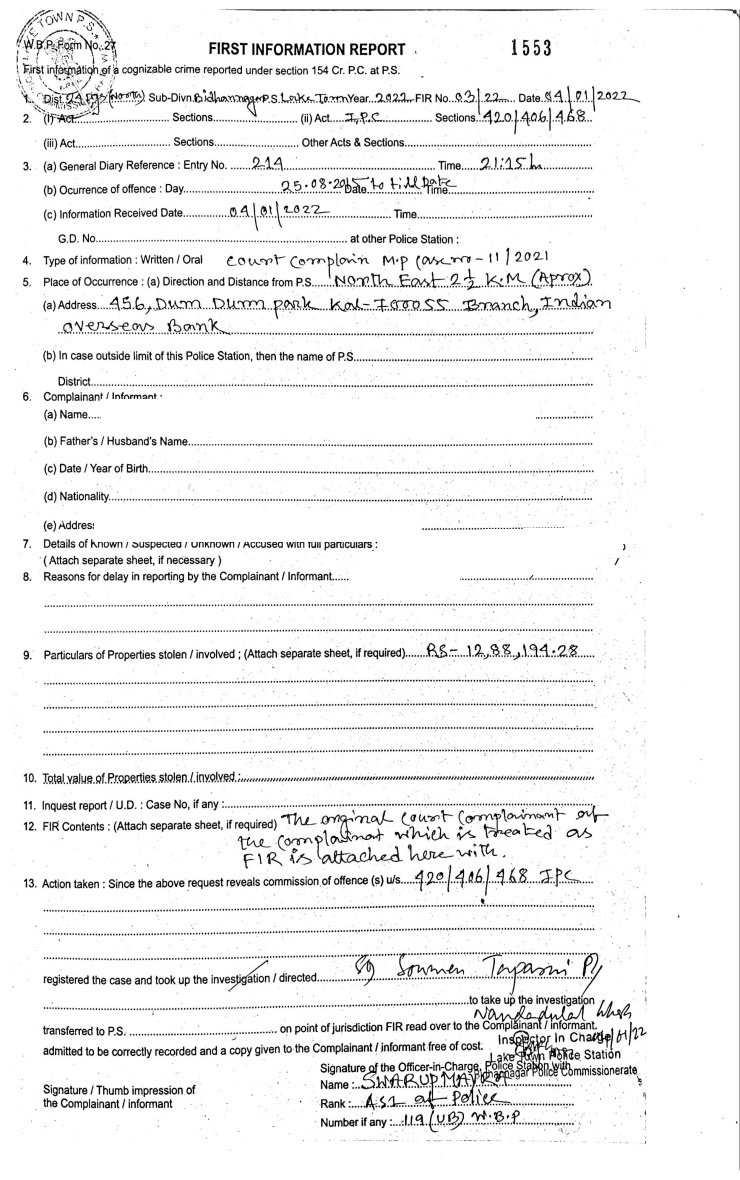 LAKE TOWN P.S.
W.B.P. Form No. 27
FIRST INFORMATION REPORT 1553
First information of a cognizable crime reported under section 154 Cr. P.C. at P.S.
1. Dist. 24 Pgs (North) Sub-Divn. Bidhannagar P.S. Lake Town Year 2022 FIR No. 03/22 Date 04/01/2022
2. (i) Act Sections (ii) Act I.P.C Sections 420/406/468
(iii) Act Sections Other Acts & Sections
3. (a) General Diary Reference : Entry No. 214 Time 21:15 h
(b) Ocurrence of offence : Day 25-08-2015 Date to till Date Time
(c) Information Received Date 04/01/2022 Time
G.D. No. at other Police Station :
4. Type of information : Written / Oral court complain M.P case no - 11/2021
5. Place of Occurrence : (a) Direction and Distance from P.S. North East 2½ K.M (Aprox)
(a) Address 456, Dum Dum park Kol-700055 Branch, Indian
overseas Bank
(b) In case outside limit of this Police Station, then the name of P.S.
District
6. Complainant / Informant :
(a) Name
(b) Father's / Husband's Name
(c) Date / Year of Birth
(d) Nationality
(e) Address
7. Details of known / Suspected / Unknown / Accused with full particulars :
( Attach separate sheet, if necessary )
8. Reasons for delay in reporting by the Complainant / Informant
9. Particulars of Properties stolen / involved ; (Attach separate sheet, if required) RS- 12,88,194.28
10. Total value of Properties stolen / involved :
11. Inquest report / U.D. : Case No, if any :
12. FIR Contents : (Attach separate sheet, if required) The original court complainant of
the complainat which is treated as
FIR is attached here with.
13. Action taken : Since the above request reveals commission of offence (s) u/s 420/406/468 IPC
registered the case and took up the investigation / directed Soumen
to take up the investigation
transferred to P.S. on point of jurisdiction FIR read over to the Complainant / informant.
Nandadulal Ghosh
Inspector In Charge /01/22
admitted to be correctly recorded and a copy given to the Complainant / informant free of cost.
Lake Town Police Station
Signature of the Officer-in-Charge, Police Station with
Bidhannagar Police Commissionerate
Name : SWARUP
Signature / Thumb impression of
the Complainant / informant
Rank : ASI of Police
Number if any : 119 (UB) W.B.P